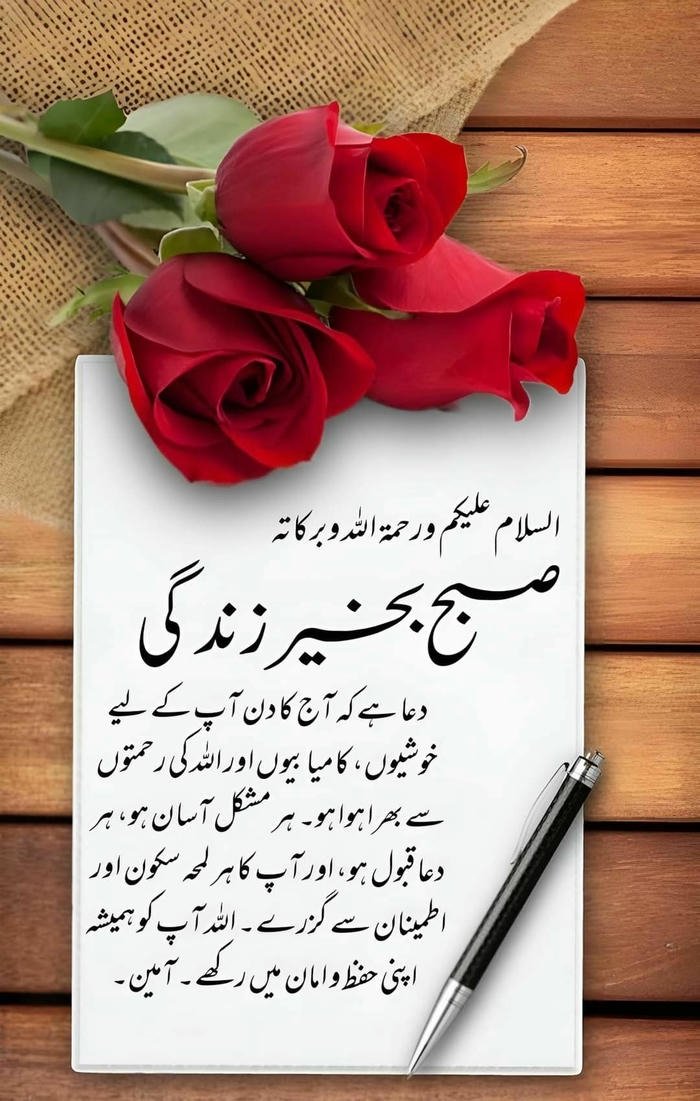 السلام علیکم ورحمۃ اللہ وبرکاتہ
صبح بخیر زندگی
دعا ہے کہ آج کا دن آپ کے لیے
خوشیوں، کامیابیوں اور اللہ کی رحمتوں
سے بھرا ہوا ہو۔ ہر مشکل آسان ہو، ہر
دعا قبول ہو، اور آپ کا ہر لمحہ سکون اور
اطمینان سے گزرے۔ اللہ آپ کو ہمیشہ
اپنی حفظ و امان میں رکھے۔ آمین۔